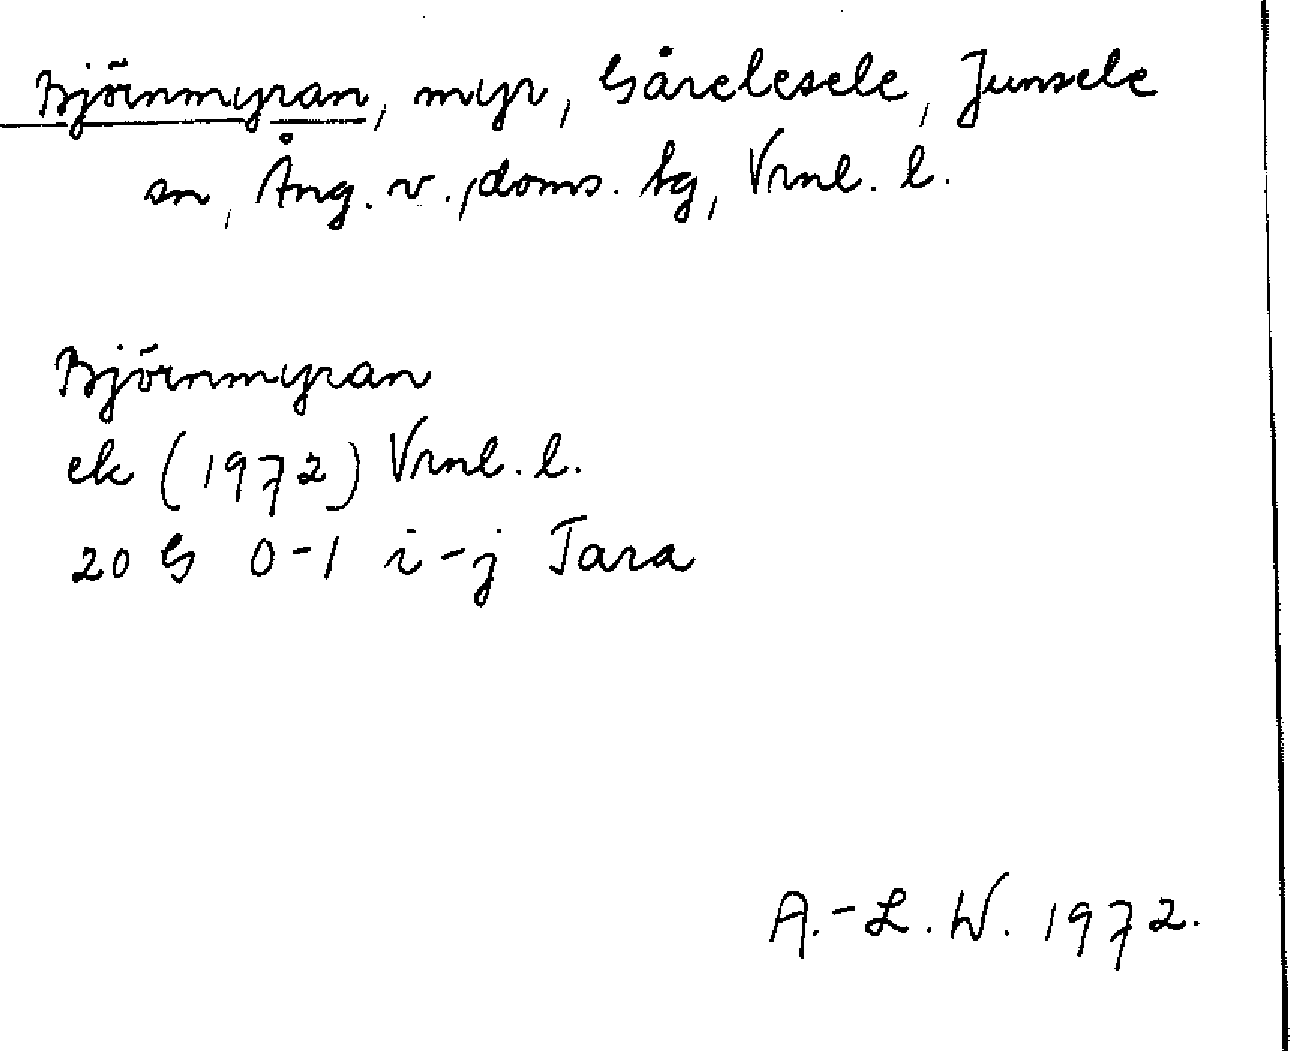 Björnmyran, myr, Gårelesele, Junsele
sn, Ång. v. doms. tg, Vrnl. l.
Björnmyran
ek (1972) Vrnl. l.
20 G 0-1 i-j Tara
A.-L. W. 1972.